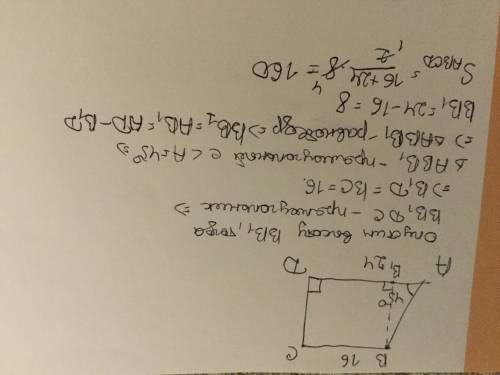 C
B
16
45°
D
B₁ 24
A
Опустим высоту BB₁, тогда
BB₁DC - прямоугольник ⇒
⇒ B₁D = BC = 16.
△ ABB₁ - прямоугольный с ∠A = 45° ⇒
⇒ △ABB₁ - равнобедр ⇒ BB₁ = AB₁ = AD - B₁D
BB₁ = 24 - 16 = 8
S_ABCD = (16 + 24)/2 · 8 = 160